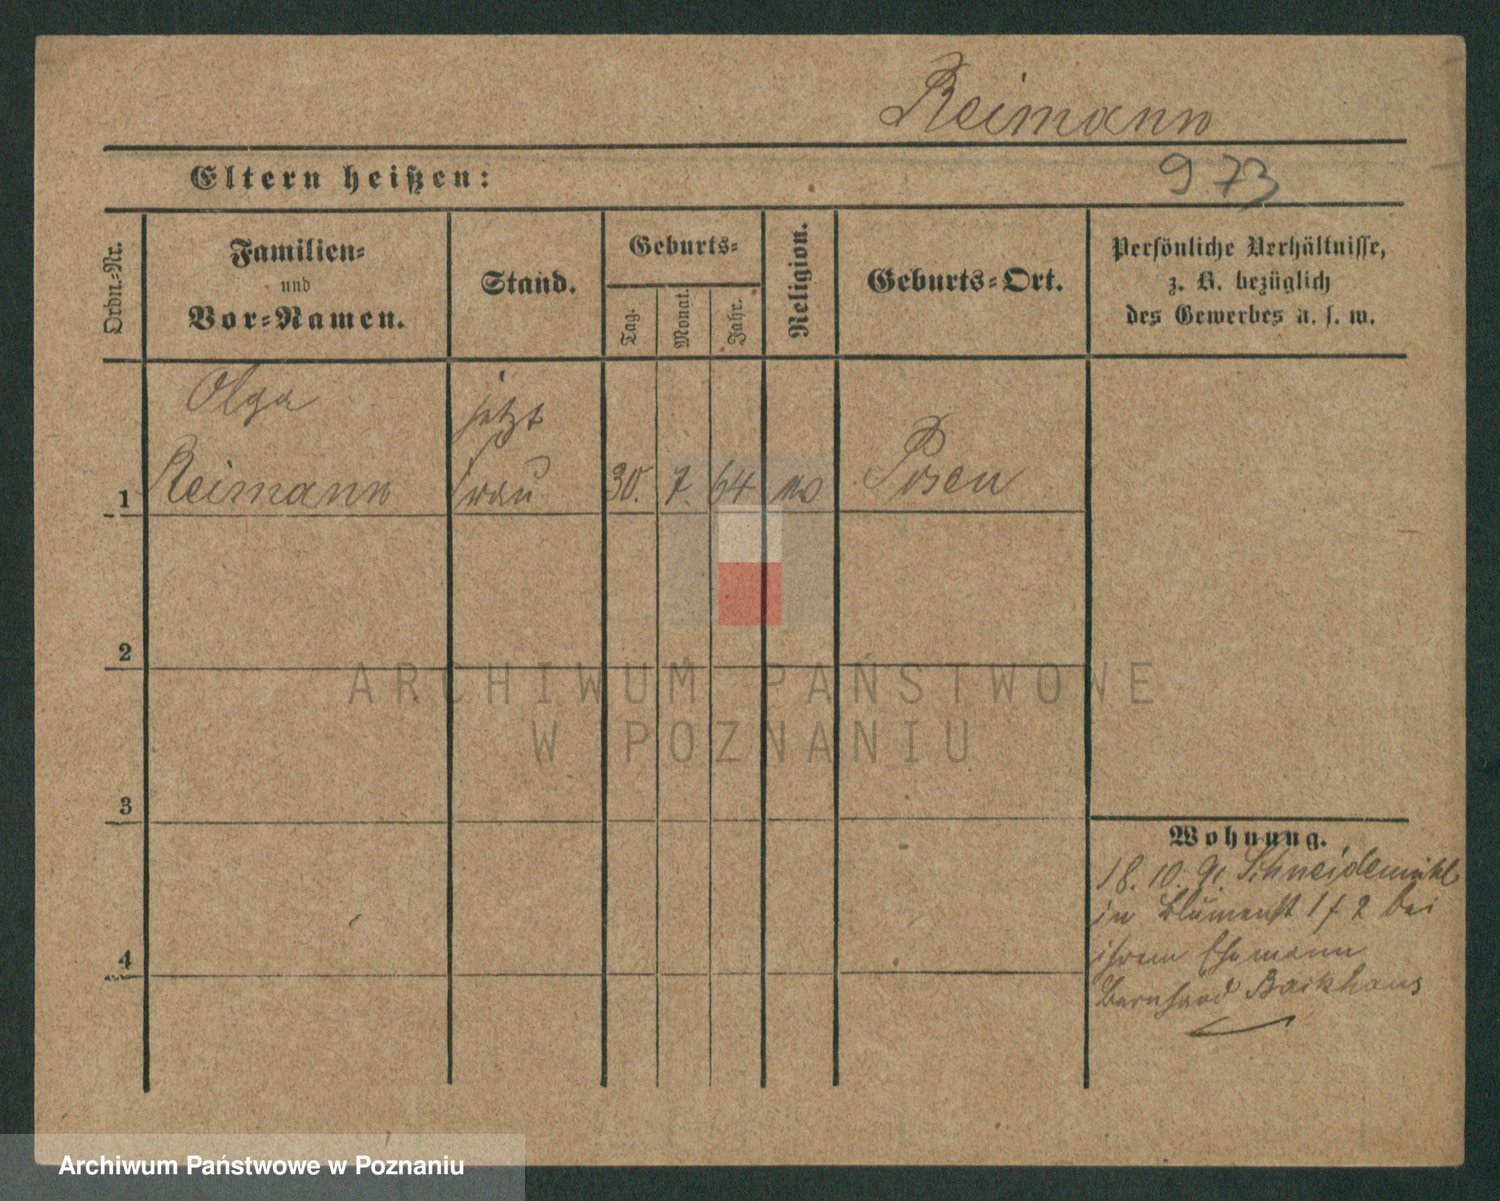 Reimann
Eltern heißen:
973
Ordn.-Nr.
Familien-
und
Vor-Namen.
Stand.
Geburts-
Tag.
Monat.
Jahr.
Religion.
Geburts-Ort.
Persönliche Verhältnisse,
z. B. bezüglich
des Gewerbes u. s. w.
Olga
jetzt
1 Reimann Frau 30. 7. 64 Posen
2
ARCHIWUM PAŃSTWOWE
W POZNANIU
3
Wohnung.
18. 10. 91. Schneidemühl
in Blumenst 1 f 2 bei
ihrem Ehemann
4
Bernhard Backhaus
Archiwum Państwowe w Poznaniu